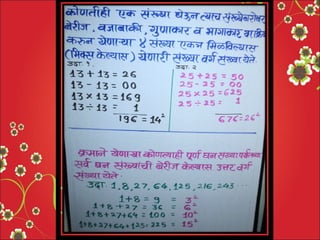 कोणतीही एक संख्या घेऊन त्याच संख्येबरोबर
बेरीज, वजाबाकी, गुणाकार व भागाकार
करुन येणाऱ्या ४ संख्या एकत्र मिळविल्यास
(मिक्स केल्यास) येणारी संख्या वर्ग संख्या येते.
उदा. १.
13 + 13 = 26
13 - 13 = 00
13 × 13 = 169
13 ÷ 13 = 1
196 = 14²
उदा. २
25 + 25 = 50
25 - 25 = 00
25 × 25 = 625
25 ÷ 25 = 1
676 = 26²
क्रमाने येणाऱ्या कोणत्याही पूर्ण घन संख्या
सर्व घन संख्यांची बेरीज केल्यास उत्तर वर्ग
संख्या येते.
उदा. 1, 8, 27, 64, 125, 216, 243
1+8 = 9 = 3²
1+8+27 = 36 = 6²
1+8+27+64 = 100 = 10²
1+8+27+64+125 = 225 = 15²